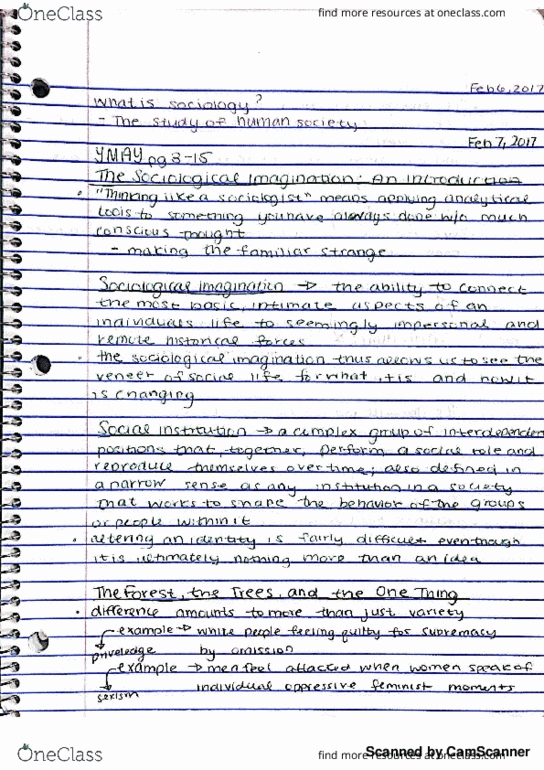 OneClass
find more resources at oneclass.com
Feb 6, 2017
What is sociology?
- The study of human society
Feb 7, 2017
YMAY pg 3-15
The Sociological Imagination: An Introduction
• "Thinking like a sociologist" means applying analytical
tools to something you have always done w/o much
conscious thought
- making the familiar strange
Sociological imagination → the ability to connect
the most basic, intimate aspects of an
individuals life to seemingly impersonal and
remote historical forces
• the sociological imagination thus allows us to see the
veneer of social life for what it is and how it
is changing
Social institution → a complex group of interdependent
positions that, together, perform a social role and
reproduce themselves over time; also defined in
a narrow sense as any institution in a society
that works to shape the behavior of the groups
or people within it
• altering an identity is fairly difficult even though
it is ultimately nothing more than an idea
The Forest, the Trees, and the One Thing
• difference amounts to more than just variety
example → white people feeling guilty for supremacy
priveledge by omission
example → men feel attacked when women speak of
sexism individual oppressive feminist moments
OneClass
find more resources at oneclass.com
Scanned by CamScanner